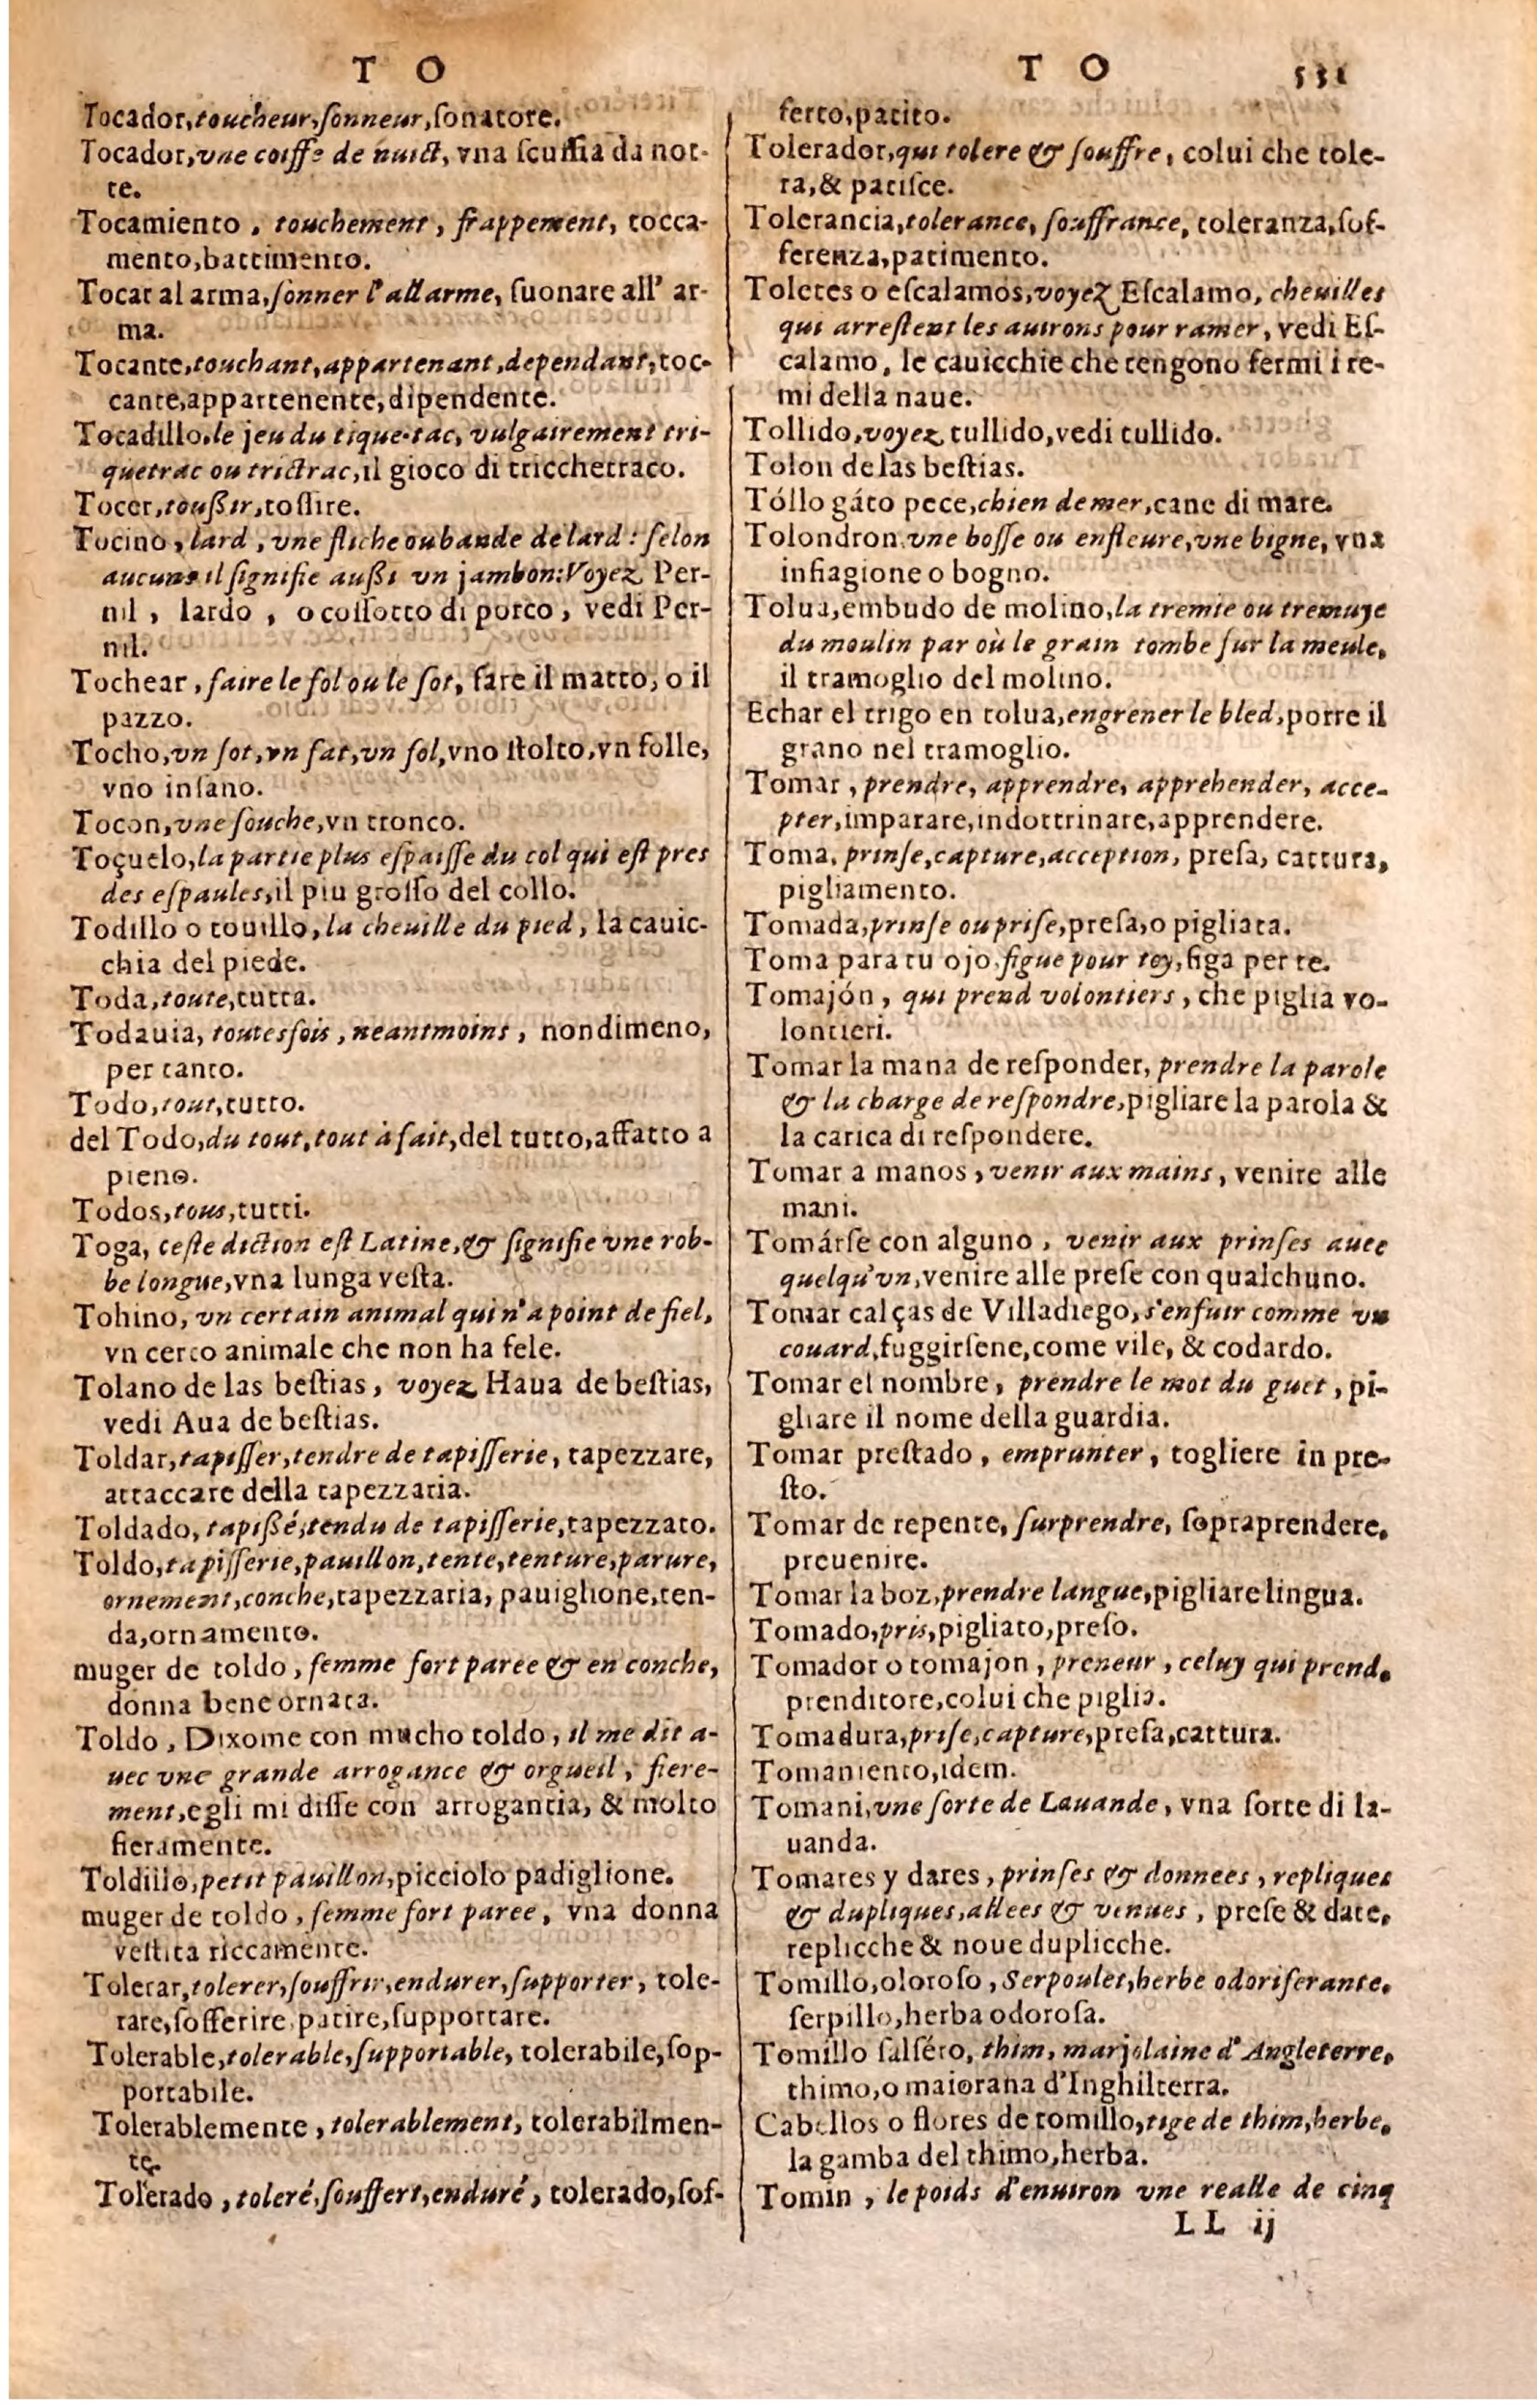 T O
Tocador, toucheur, sonneur, sonatore.
Tocador, vne coiffe de nuict, vna scuffia da not-
te.
Tocamiento, touchement, frappement, tocca-
mento, battimento.
Tocar al arma, sonner l'allarme, suonare all' ar-
ma.
Tocante, touchant, appartenant, dependant, toc-
cante, appartenente, dipendente.
Tocadillo, le jeu du tique-tac, vulgairement tri-
quetrac ou trictrac, il gioco di tricchetraco.
Tocer, toußir, tossire.
Tocino, lard, vne fliche ou bande de lard: selon
aucuns il signifie außi vn jambon: Voyez Per-
nil, lardo, o cossotto di porco, vedi Per-
nil.
Tochear, faire le fol ou le sot, fare il matto, o il
pazzo.
Tocho, vn sot, vn fat, vn fol, vno stolto, vn folle,
vno insano.
Tocon, vne souche, vn tronco.
Toçuelo, la partie plus espaisse du col qui est pres
des espaules, il piu grosso del collo.
Todillo o touillo, la cheuille du pied, la cauic-
chia del piede.
Toda, toute, tutta.
Todauia, toutesfois, neantmoins, nondimeno,
per tanto.
Todo, tout, tutto.
del Todo, du tout, tout à fait, del tutto, affatto a
pieno.
Todos, tous, tutti.
Toga, ceste diction est Latine, & signifie vne rob-
be longue, vna lunga vesta.
Tohino, vn certain animal qui n'a point de fiel,
vn certo animale che non ha fele.
Tolano de las bestias, voyez Haua de bestias,
vedi Aua de bestias.
Toldar, tapisser, tendre de tapisserie, tapezzare,
attaccare della tapezzaria.
Toldado, tapißé, tendu de tapisserie, tapezzato.
Toldo, tapisserie, pauillon, tente, tenture, parure,
ornement, conche, tapezzaria, pauiglione, ten-
da, ornamento.
muger de toldo, femme fort paree & en conche,
donna bene ornata.
Toldo, Dixome con mucho toldo, il me dit a-
uec vne grande arrogance & orgueil, fiere-
ment, egli mi disse con arrogantia, & molto
fieramente.
Toldillo, petit pauillon, picciolo padiglione.
muger de toldo, femme fort paree, vna donna
vestita riccamente.
Tolerar, tolerer, souffrir, endurer, supporter, tole-
rare, sofferire, patire, supportare.
Tolerable, tolerable, supportable, tolerabile, sop-
portabile.
Tolerablemente, tolerablement, tolerabilmen-
te.
Tolerado, toleré, souffert, enduré, tolerado, sof-
T O 531
ferto, patito.
Tolerador, qui tolere & souffre, colui che tole-
ra, & patisce.
Tolerancia, tolerance, souffrance, toleranza, sof-
ferenza, patimento.
Toletes o escalamos, voyez Escalamo, cheuilles
qui arrestent les auirons pour ramer, vedi Es-
calamo, le cauicchie che tengono fermi i re-
mi della naue.
Tollido, voyez tullido, vedi tullido.
Tolon de las bestias.
Tóllo gáto pece, chien de mer, cane di mare.
Tolondron, vne bosse ou enfleure, vne bigne, vna
infiagione o bogno.
Tolua, embudo de molino, la tremie ou tremuye
du moulin par où le grain tombe sur la meule,
il tramoglio del molino.
Echar el trigo en tolua, engrener le bled, porre il
grano nel tramoglio.
Tomar, prendre, apprendre, apprehender, acce-
pter, imparare, indottrinare, apprendere.
Toma, prinse, capture, acception, presa, cattura,
pigliamento.
Tomada, prinse ou prise, presa, o pigliata.
Toma para tu ojo, figue pour toy, figa per te.
Tomajón, qui prend volontiers, che piglia vo-
lontieri.
Tomar la mana de responder, prendre la parole
& la charge de respondre, pigliare la parola &
la carica di respondere.
Tomar a manos, venir aux mains, venire alle
mani.
Tomárse con alguno, venir aux prinses auec
quelqu'vn, venire alle prese con qualchuno.
Tomar calças de Villadiego, s'enfuir comme vn
couard, fuggirsene, come vile, & codardo.
Tomar el nombre, prendre le mot du guet, pi-
gliare il nome della guardia.
Tomar prestado, emprunter, togliere in pre-
sto.
Tomar de repente, surprendre, sopraprendere,
preuenire.
Tomar la boz, prendre langue, pigliare lingua.
Tomado, pris, pigliato, preso.
Tomador o tomajon, preneur, celuy qui prend,
prenditore, colui che piglia.
Tomadura, prise, capture, presa, cattura.
Tomamiento, idem.
Tomani, vne sorte de Lauande, vna sorte di la-
uanda.
Tomares y dares, prinses & donnees, repliques
& dupliques, allees & venues, prese & date,
replicche & noue duplicche.
Tomillo, oloroso, Serpoulet, herbe odoriferante,
serpillo, herba odorosa.
Tomillo salséro, thim, marjolaine d'Angleterre,
thimo, o maiorana d'Inghilterra.
Cabellos o flores de tomillo, tige de thim, herbe,
la gamba del thimo, herba.
Tomin, le poids d'enuiron vne realle de cinq
LL ij